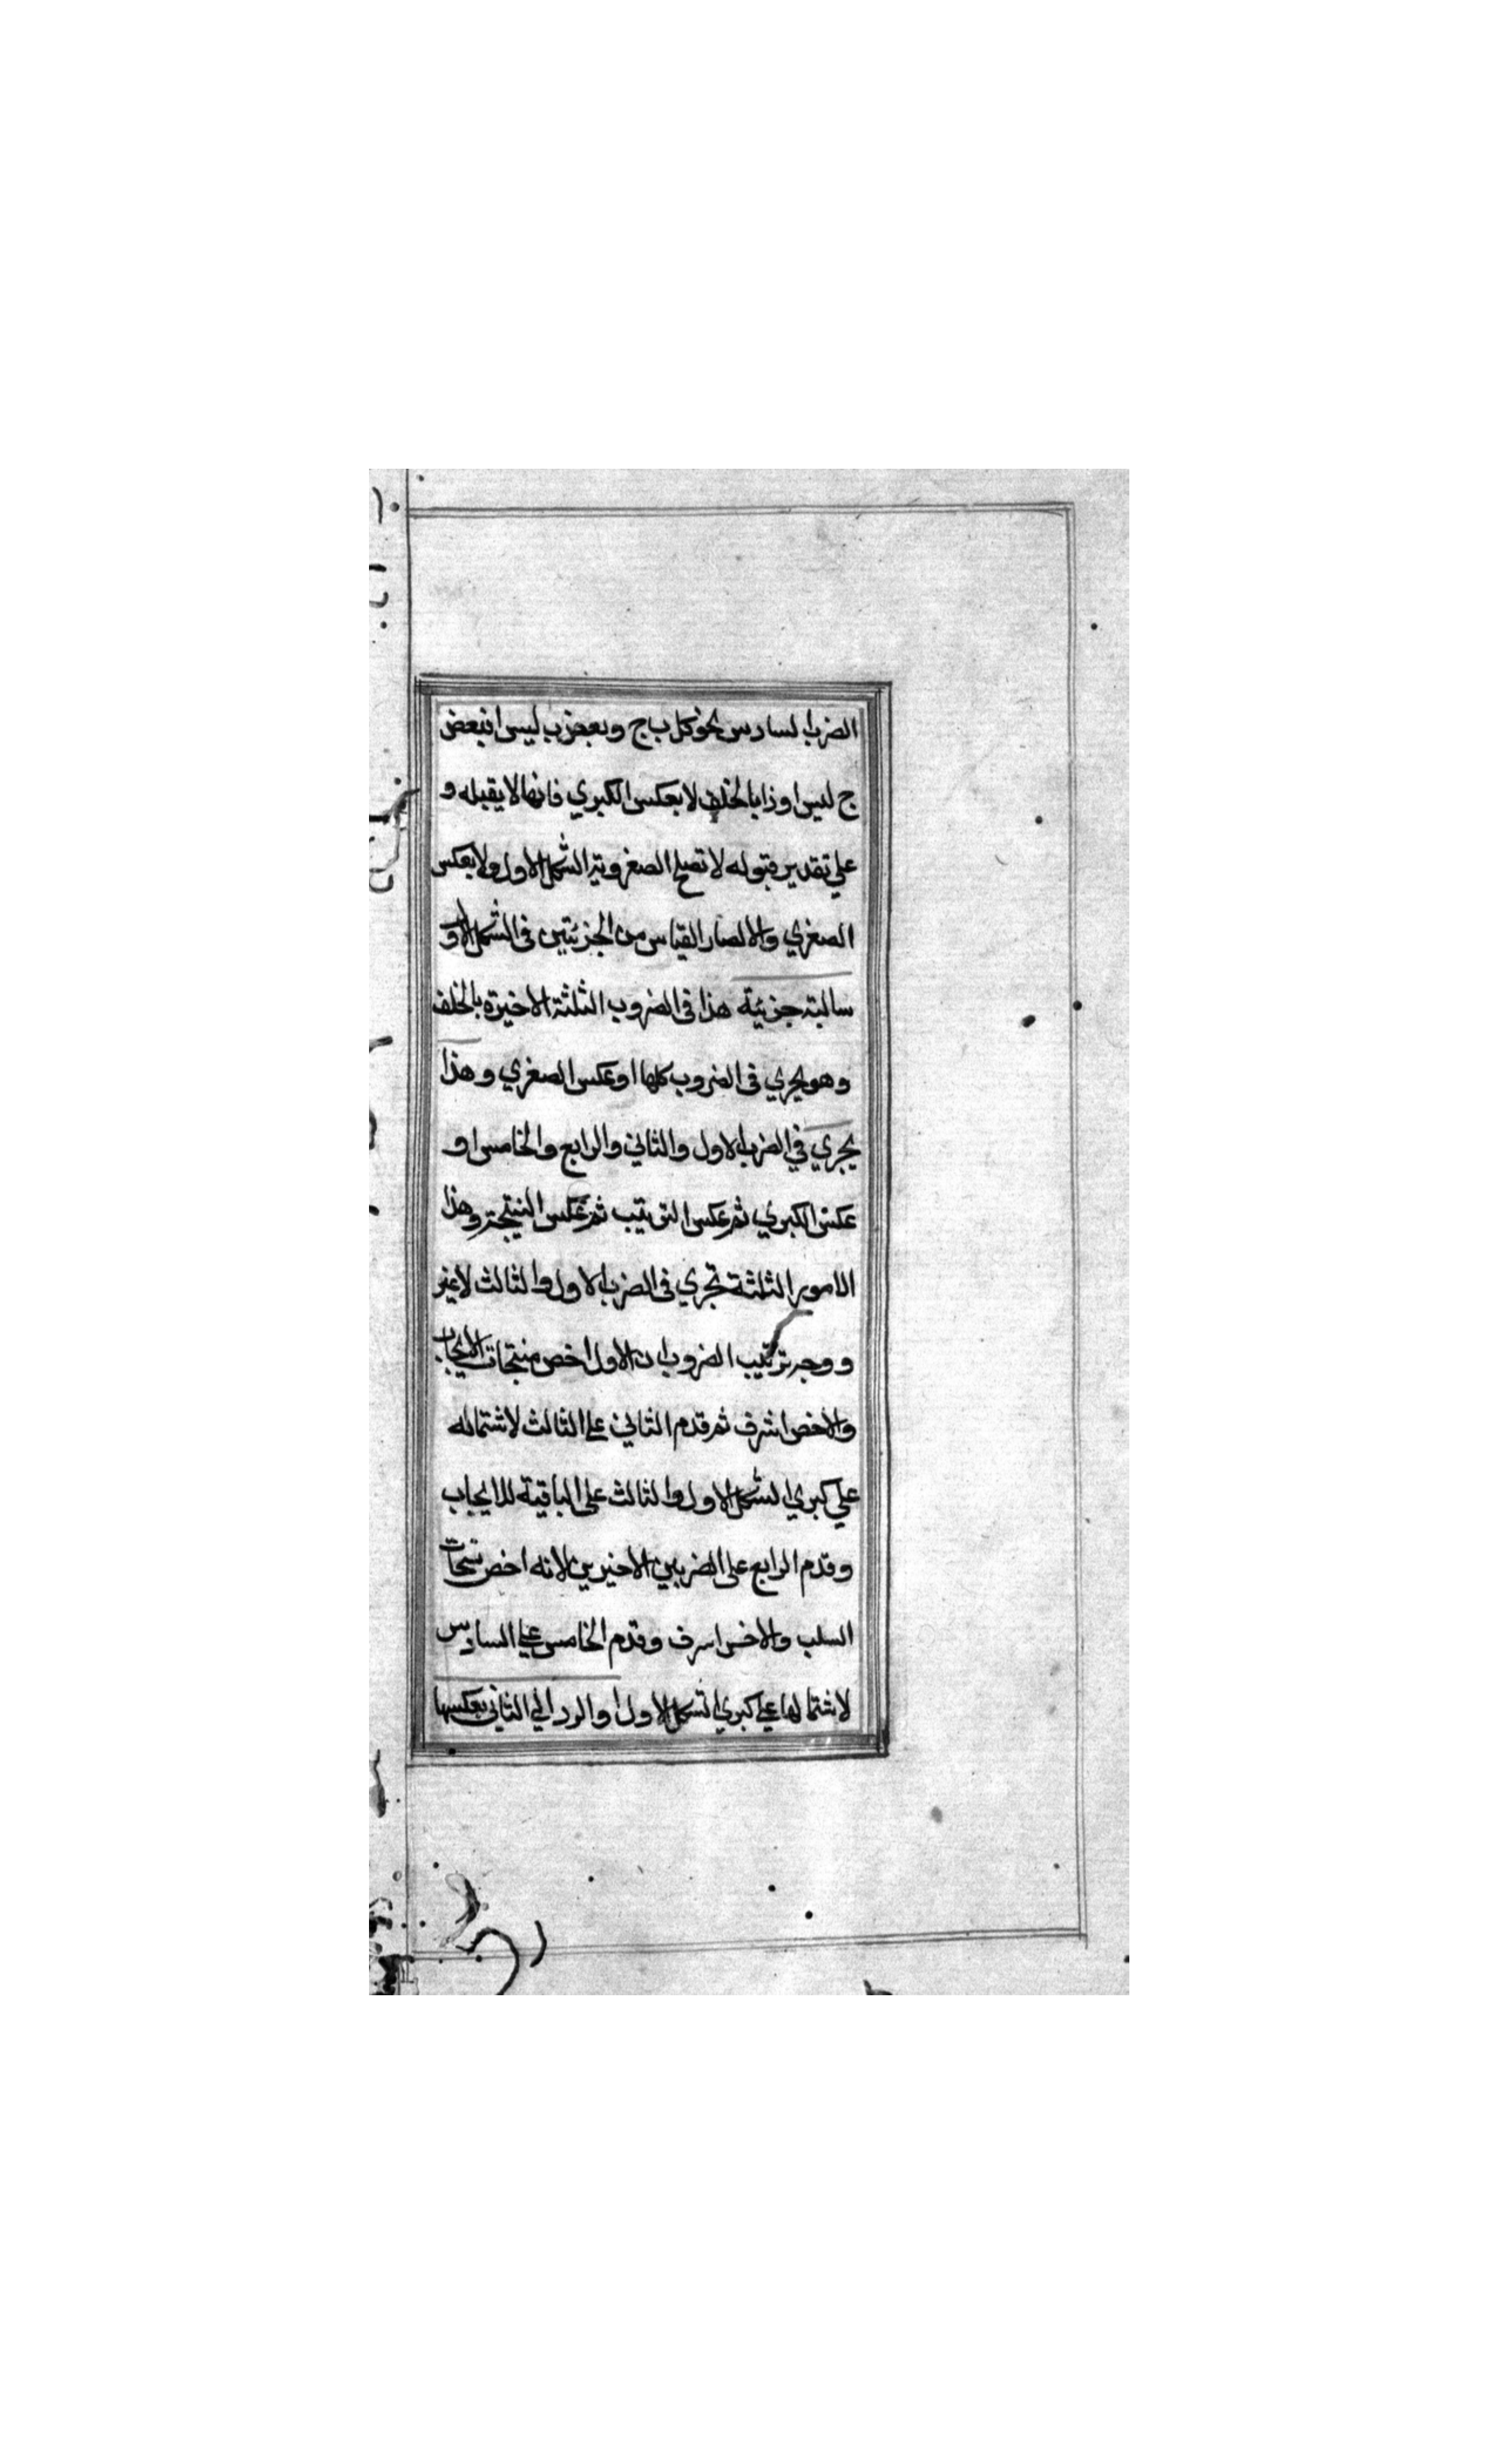 الضرب السادس نحو كل ب ج وبعض ب ليس ا فبعض
ج ليس ا وذا بالخلف لا بعكس الكبري فانها لا يقبله و
علي تقدير قبوله لا تصلح الصغروية الشكل الاول ولا بعكس
الصغري والا لصار القياس من الجزئيتين في الشكل الاول
سالبة جزئية هذا في الضروب الثلثة الاخيرة بالخلف
وهو يجري في الضروب كلها او عكس الصغري وهذا
يجري في الضرب الاول والثاني والرابع والخامس او
عكس الكبري ثم عكس الترتيب ثم عكس النتيجة وهذا
الامور الثلثة تجري في الضرب الاول والثالث لا غير
ووجه ترتيب الضروب ان الاول اخص منتجات الايجاب
والاخص اشرف ثم قدم الثاني علي الثالث لاشتماله
علي كبري الشكل الاول والثالث علي الباقية للايجاب
وقدم الرابع علي الضربين الاخيرين لانه اخص منتجات
السلب والاخس اسرف وقدم الخامس علي السادس
لاشتمالها علي كبري الشكل الاول او الرد الي الثاني بعكسها